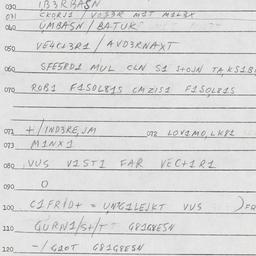 030 1B3RBASN
031 CKORJ1 / VO13R M1T M1LBX
040 UMBASN / BATUK
050 VE4CL3R1 / AVD3RNAXT
060 SFE5RD1 MUL CLN S1 STOJN TAKS1B
070 ROB1 F1SOL81S CMZIS1 F1SOL81S
071 +/IND3RE,JM 072 LOV1MO,LK81
073 M1NX1
080 VUS V1ST1 FAR VEC+1R1
090 O
100 C1FR1D+ = UN&G1LEJKT VUS ) FR
110 GURN1/S+/T G81G8ESN
120 -/G10T G81G8ESN